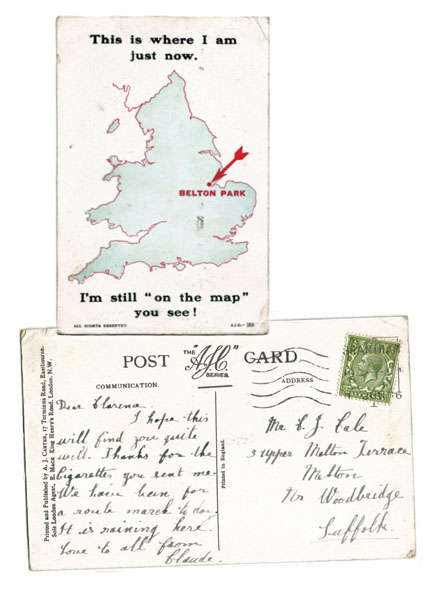 This is where I am
just now.
BELTON PARK
I'm still "on the map"
you see!
ALL RIGHTS RESERVED
A.J.C.
Printed and Published by A. J. CARTER, 17 Terminus Road, Eastbourne.
Sole London Agent, E. Mack, King Henry's Road, London, N.W.
POST THE "AJC" SERIES CARD
COMMUNICATION.
ADDRESS
Printed in England.
Dear Clarena.
I hope this
will find you quite
well. Thanks for the
Cigarettes you sent me.
We have been for
a route march to day.
It is raining here.
Love to all from
Claude.
Mr C. J. Cale
5 upper Melton Terrace
Melton
Nr Woodbridge
Suffolk.